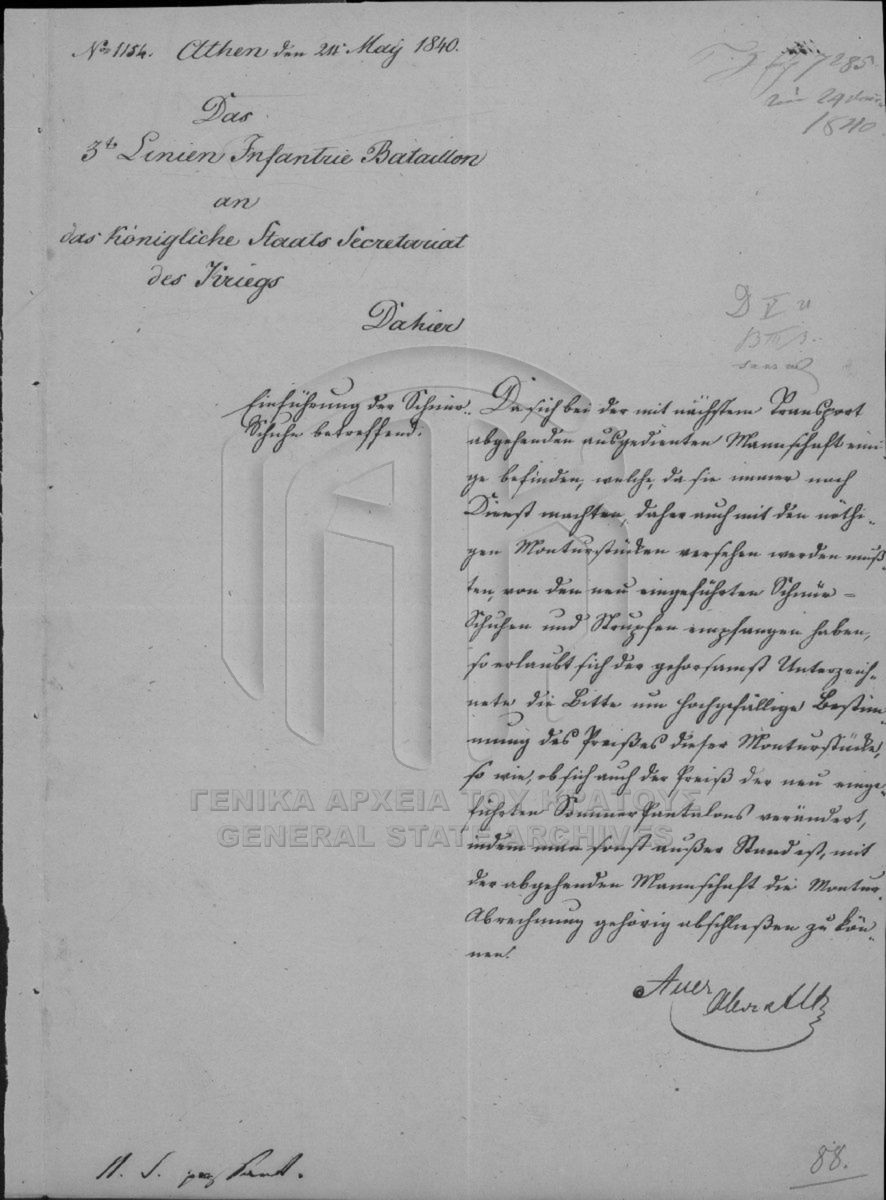 No 1154. Athen den 21t May 1840.
7285
1840
Das
3te Linien Infantrie Bataillon
an
das Königliche Staats Secretariat
des Kriegs
Dahier
D V
B III
Einführung der Schnür-
Schuhe betreffend.
Da sich bei der mit nächstem Transport
abgehenden ausgedienten Mannschaft eini-
ge befinden, welche, da sie immer noch
Dienst machten, daher auch mit den nöthi-
gen Monturstücken versehen werden muß-
ten, von den neu eingeführten Schnür-
Schuhen und Strupfen empfangen haben,
so erlaubt sich der gehorsamst Unterzeich-
nete die Bitte um hochgefällige Bestim-
mung des Preißes dieser Monturstücke,
so wie, ob sich auch der Preiß der neu einge-
führten Sommer Pantalons verändert,
indem man sonst außer Stand ist, mit
der abgehenden Mannschaft die Montur-
Abrechnung gehörig abschließen zu kön-
nen.
Auer
ΓΕΝΙΚΑ ΑΡΧΕΙΑ ΤΟΥ ΚΡΑΤΟΥΣ
GENERAL STATE ARCHIVES
88.